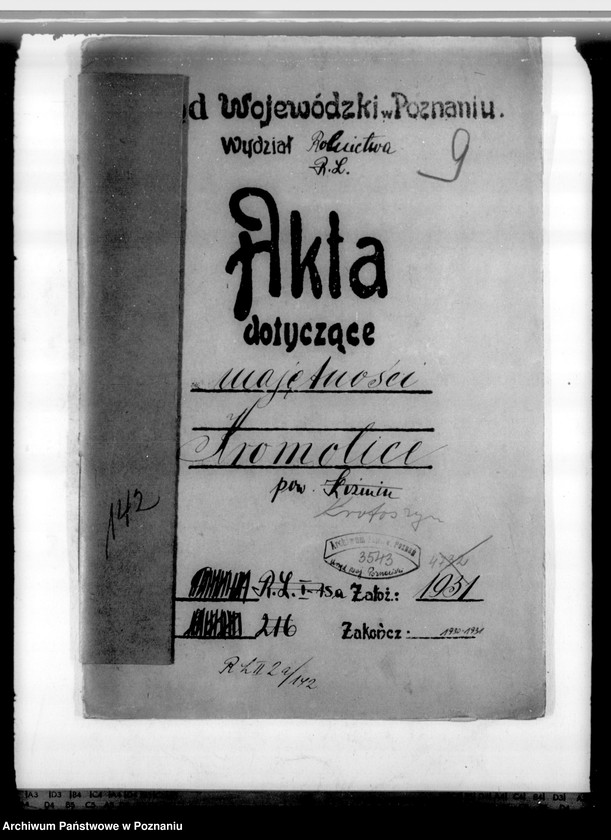 d Wojewódzki w Poznaniu.
Wydział Rolnictwa
R.L.
9
Akta
dotyczące
majętności
Kromolice
pow. Koźmin
Krotoszyn
142
3543
R.L. I-15a Założ.: 1931
216 Zakończ.: 1930-1931
R L II 2a/142
Archiwum Państwowe w Poznaniu